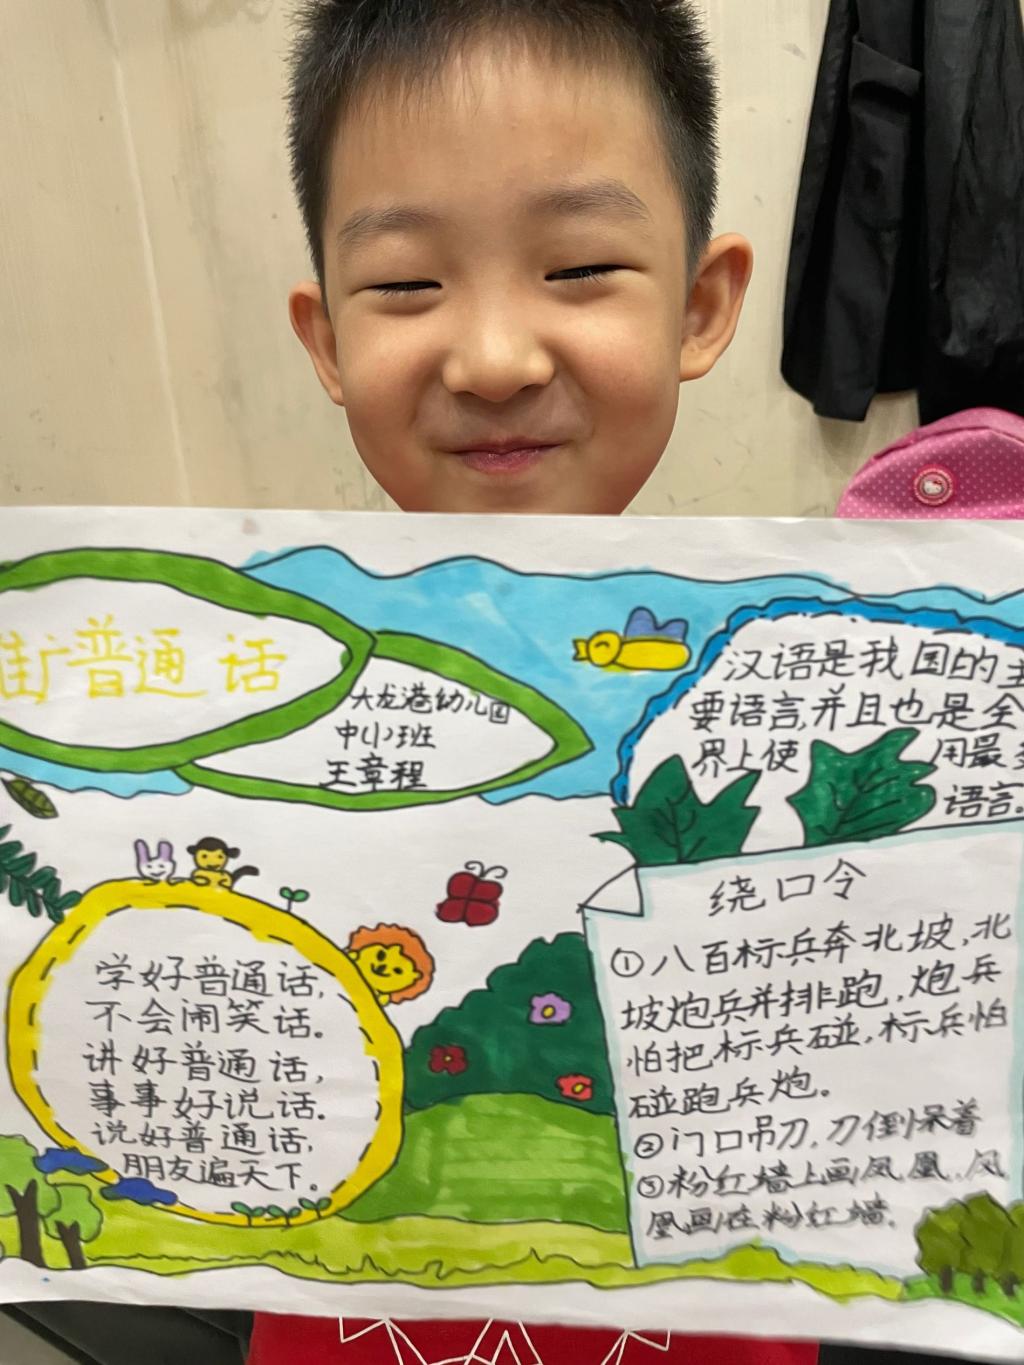 推广普通话
大龙港幼儿园
中(1)班
王章程
汉语是我国的主
要语言,并且也是全
界上使用最多
语言。
学好普通话,
不会闹笑话。
讲好普通话,
事事好说话.
说好普通话,
朋友遍天下。
绕口令
①八百标兵奔北坡,北
坡炮兵并排跑,炮兵
怕把标兵碰,标兵怕
碰跑兵炮。
②门口吊刀,刀倒吊着
③粉红墙上画凤凰,凤
凰画在粉红墙.